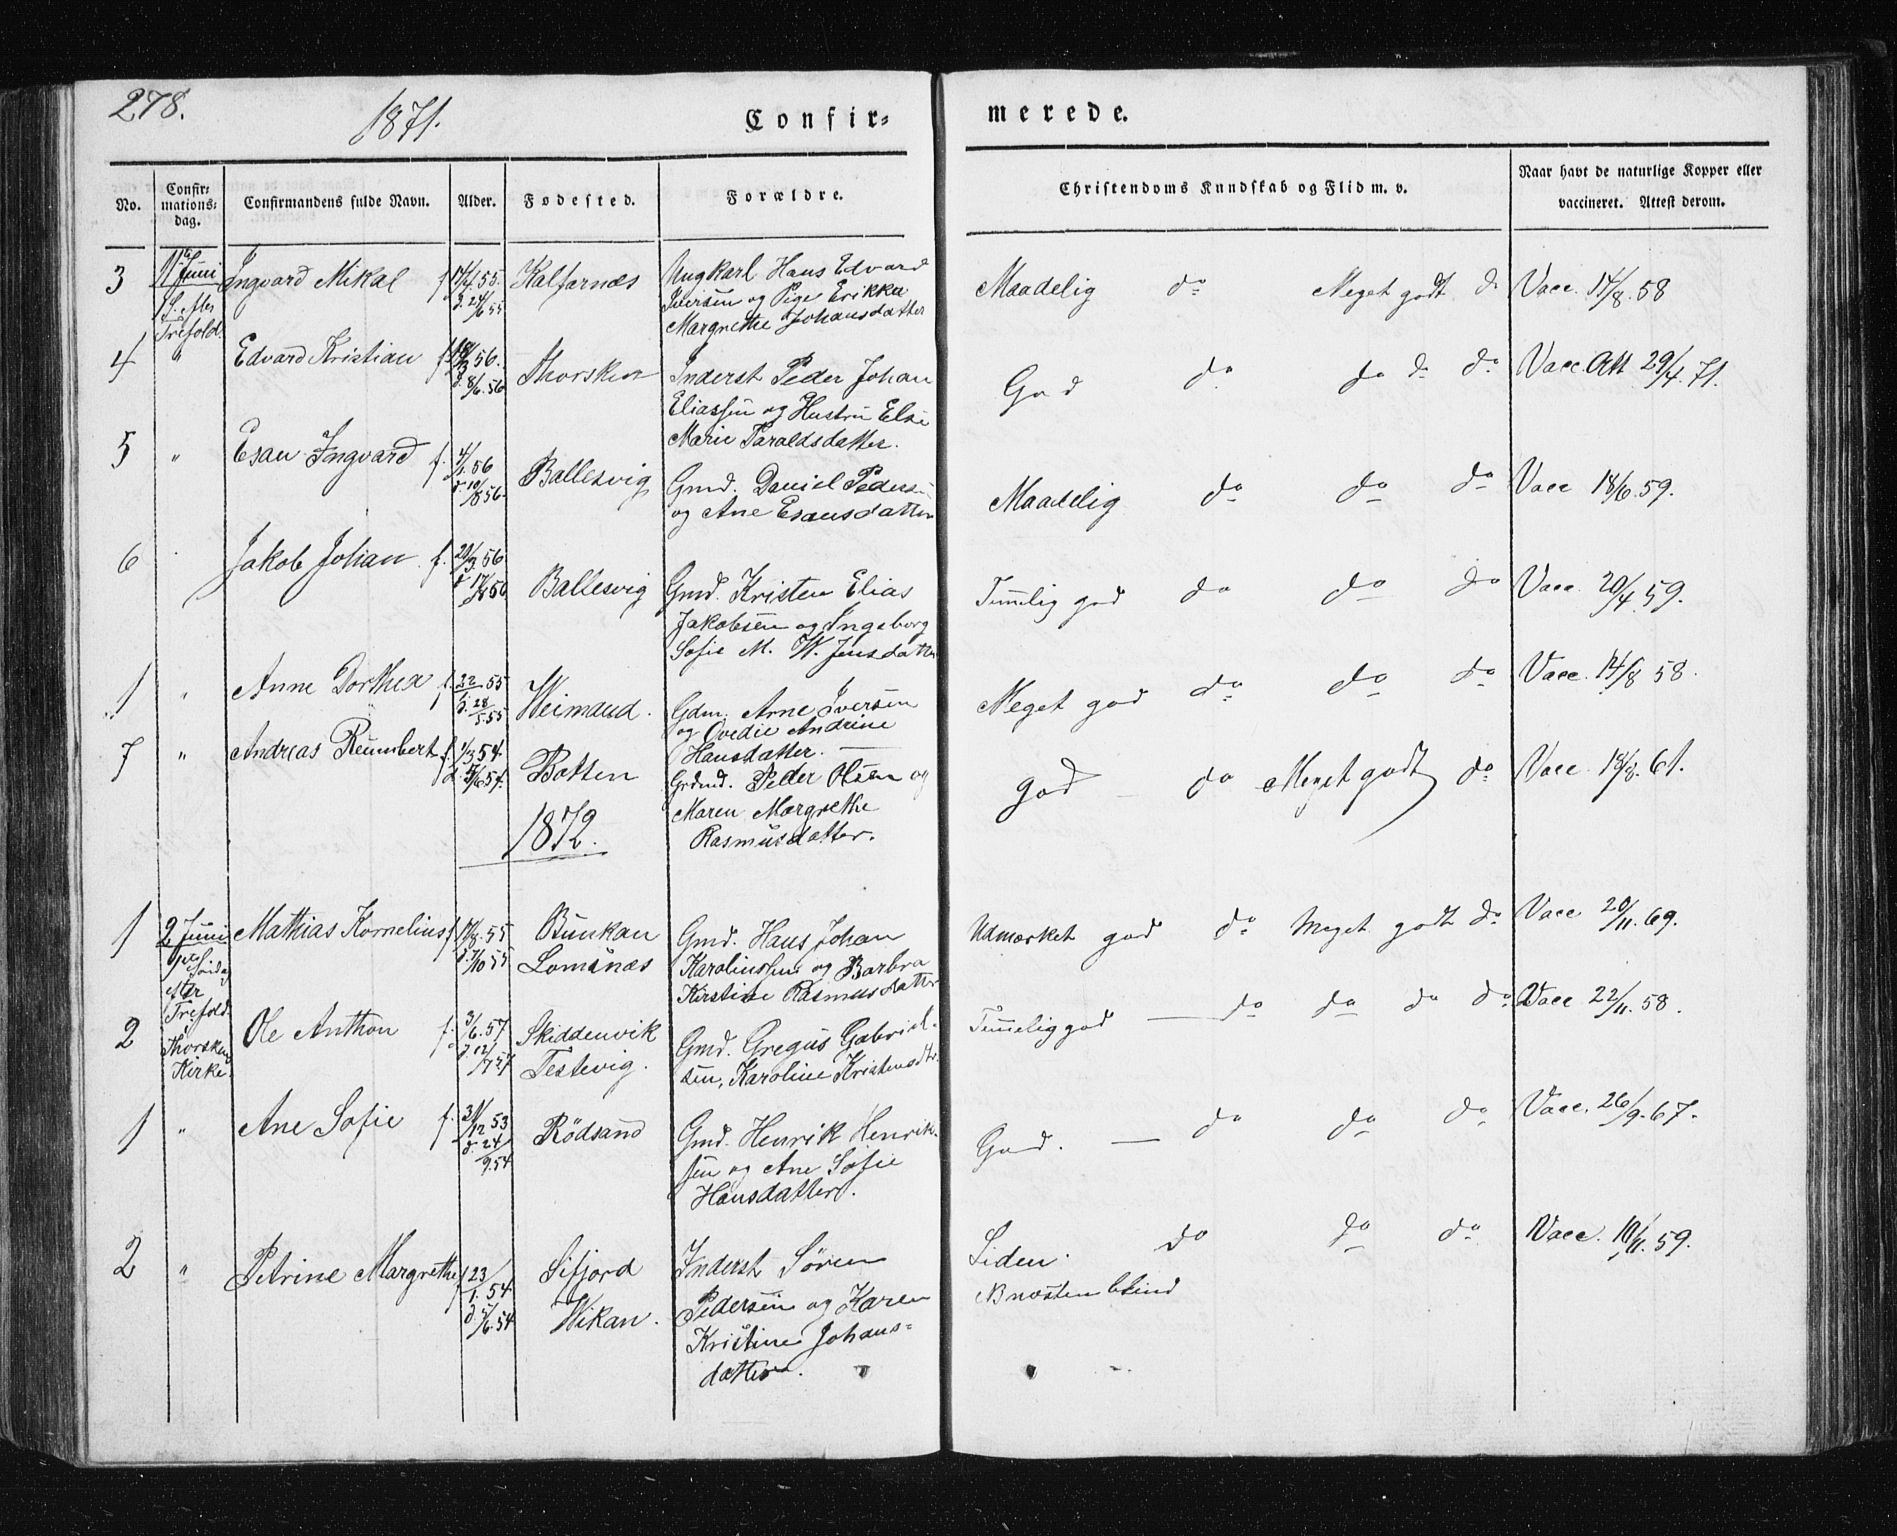 278.
1871.
Confir=
merede.
No.
Confir=
mations=
dag.
Confirmandens fulde Navn.
Alder.
Fødested.
Forældre.
Christendoms Kundskab og Flid m. v.
Naar havt de naturlige Kopper eller
vaccineret. Attest derom.
3
11 Juni
S. efter
Trefold.
Ingvard Mikal
Kalfarnæs
Ungkarl Hans Edvard
Iversen og Pige Erikka
Margrethe Johansdatter
Maadelig do Meget godt
Vacc. 14/8.58
4 "
Edvard Kristian
d. 8/6.56
Thorsken
Inderst Peder Johan
Eliassen og Hustru Else
Marie Taraldsdatter.
God do do do do
Vacc. Att 29/4.71.
5 "
Esau Ingvard f. 4/1.56
d. 10/8 56.
Ballesvig
Gmd. Daniel Peders
og Ane Esausdatter
Maadelig do do do
Vacc 18/6.59.
6
Jakob Johan f. 20/3.56
Ballesvig
Gmd. Kristen Elias
Jakobsen og Ingeborg
Sofie M. W. Jensdatter
Temelig god do do do
Vacc. 20/4.59.
1 "
Anne Dorthea
d. 28/5.55
Weimand.
Gdm. Arne Iversen
og Ovedie Andrine
Hansdatter.
Meget god do do do
Vacc. 14/8 58.
7 "
Andreas Reimbert f. 1/3 54
Botten
Grdmd. Peder Olsen og
Maren Margrethe
Rasmusdatter.
god do Meget godt do
Vacc. 18/8.61.
1872.
1
2 Juni
1ste Sønd
efter
Trefold.
i
Thorskens
Kirke.
Mathias Kornelius
d. 7/10 55
Bunkan
Lomsnæs
Gmd. Hans Johan
Karolinssen og Barbra
Kirstine Rasmusdatter
Udmærket god do Meget godt do
Vacc 20/11.69.
2
Ole Anthon f. 3/6.57
d. 12/7 57
Skiddenvik
Testevig.
Gmd. Gregus Gabriel-
sen, Karoline Kristensdtr
Temelig god — do do do do
Vacc 22/11.58.
1 "
Ane Sofie f. 31/12 53
d. 24/9.54
Rödsand
Gmd. Henrik Henrik-
sen og Ane Sofie
Hansdatter.
God. — do do do
Vacc. 26/9.67.
2 "
Petrine Margrethe f 23/1.54
Sifjord
Wikan.
Inderst Søren
Pedersen og Karen
Kristine Johans=
datter.
Liden. do do do
Næsten blind
Vacc. 10/11.59.